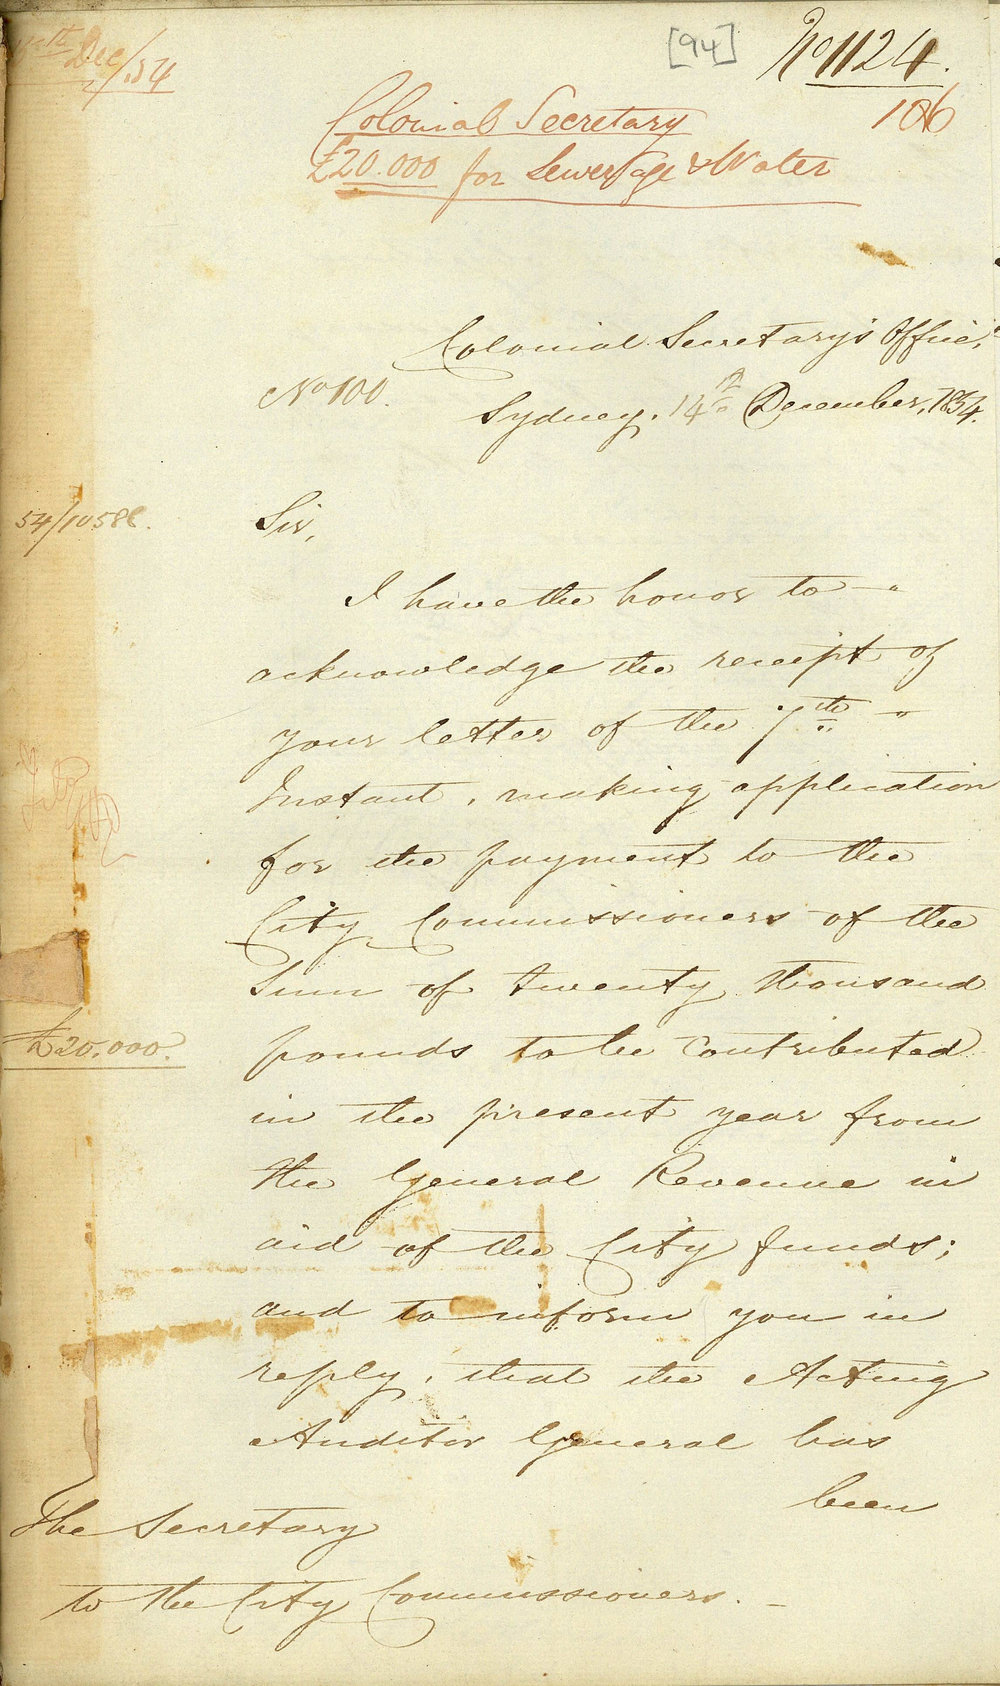 Dec/54
[94]
No 1124.
106
Colonial Secretary
£20.000 for Sewerage & Water
Colonial Secretary's Office,
No 100.
Sydney. 14th December, 1854.
54/10581.
Sir,
I have the honor to
acknowledge the receipt of
your letter of the 7th
Instant, making application
for the payment to the
City Commissioners of the
Sum of twenty thousand
£20.000.
pounds to be contributed
in the present year from
the General Revenue in
aid of the City funds;
and to inform you in
reply, that the Acting
Auditor General has
been
The Secretary
to the City Commissioners.